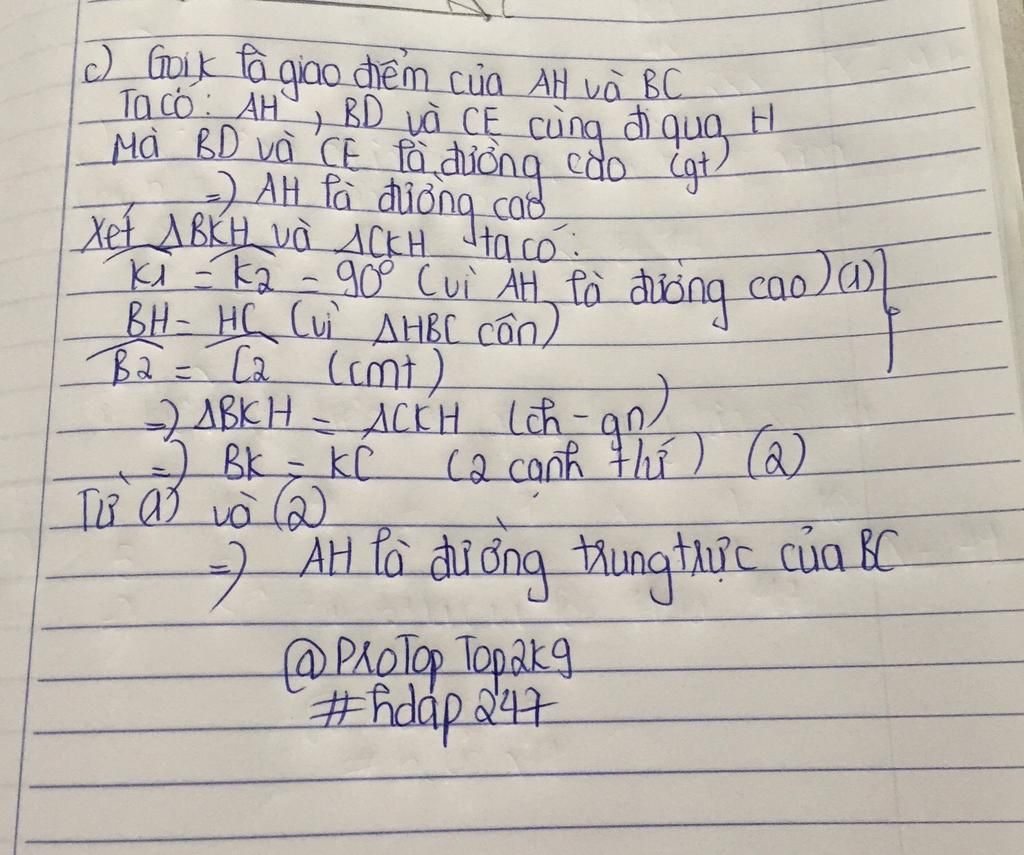 c) Gọi K là giao điểm của AH và BC
Ta có: AH, BD và CE cùng đi qua H
Mà BD và CE là đường cao (gt)
=) AH là đường cao
Xét ΔBKH và ΔCKH ta có:
K1 = K2 = 90° (vì AH là đường cao) (1)
BH = HC (vì ΔHBC cân)
B2 = C2 (cmt)
=) ΔBKH = ΔCKH (ch - gn)
=) BK = KC (2 cạnh tứ) (2)
Từ (1) và (2)
=) AH là đường trung trực của BC
@ProTopTop2k9
#hdap247